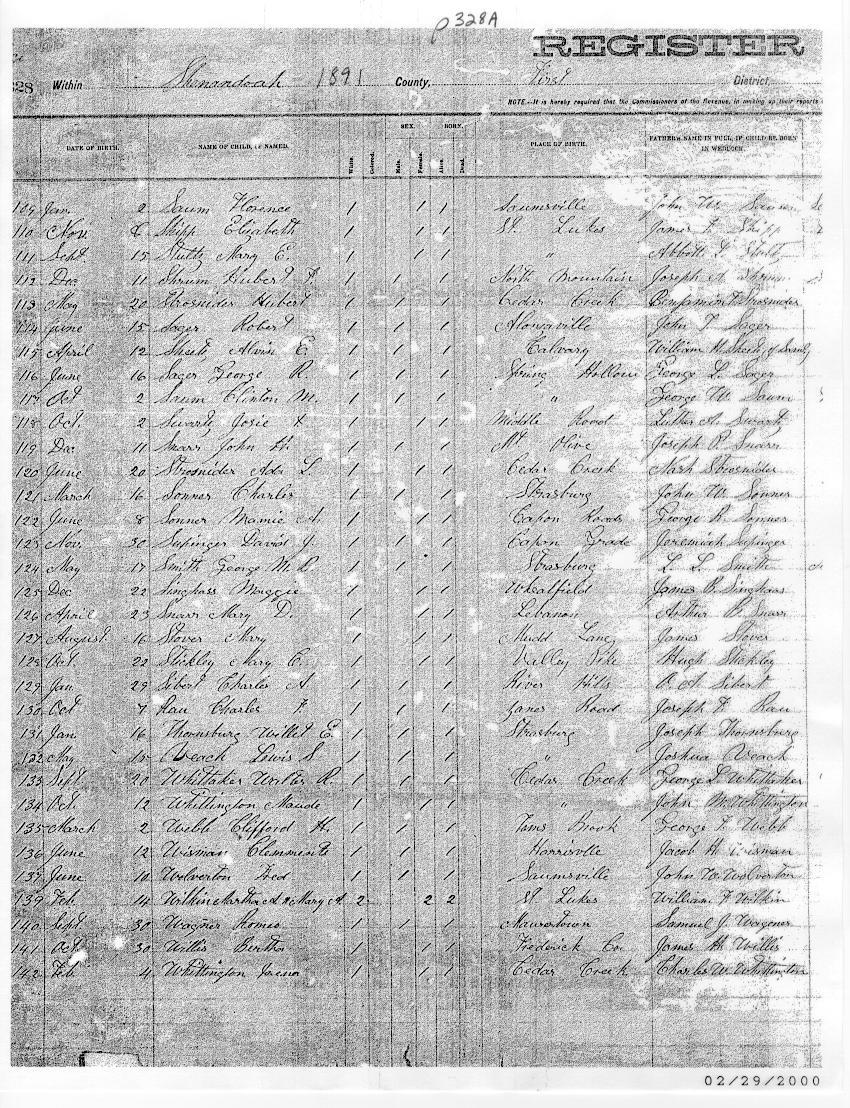 p 328A
REGISTER
328 Within Shenandoah 1891 County, First District,
NOTE.—It is hereby required that the Commissioners of the Revenue, in making up their reports
SEX. BORN.
DATE OF BIRTH. NAME OF CHILD, IF NAMED. White. Colored. Male. Female. Alive. Dead. PLACE OF BIRTH. FATHER'S NAME IN FULL, IF CHILD BE BORN
IN WEDLOCK.
109 Jan 2 Saum Florence 1 1 1 Saumsville John W. Saum
110 Nov 6 Shipp Elizabeth 1 1 1 St. Lukes James F. Shipp
111 Sept 15 Stultz Mary E. 1 1 1 " Abbott L.
112 Dec 11 Shrum Hubert 1 1 1 North Mountain Joseph A. Shrum
113 May 20 Strosnider Hubert 1 1 1 Cedar Creek Benjamin F. Strosnider
114 June 15 Sager Robert 1 1 1 Alonzville John T. Sager
115 April 12 Sheetz Alvin E. 1 1 1 Calvary William H. Sheetz of
116 June 16 Sager George R. 1 1 1 Spring Hollow George L. Sager
117 Oct 2 Saum Clinton M. 1 1 1 " George W. Saum
118 Oct. 2 Swartz Josie 1 1 1 Middle Road Luther A. Swartz
119 Dec 11 Snarr John H. 1 1 1 Mt Olive Joseph R. Snarr
120 June 20 Strosnider Ada L 1 1 1 Cedar Creek Nash Strosnider
121 March 16 Sonner Charles 1 1 1 Strasburg John W. Sonner
122 June 8 Sonner Mamie A. 1 1 1 Capon Road George R. Sonner
123 Nov. 30 Supinger David J. 1 1 1 Capon Grade Jeremiah Supinger
124 May 17 Smith George M. R. 1 1 1 Strasburg L. L. Smith
125 Dec 22 Singhass Maggie 1 1 1 Wheatfield James B. Singhass
126 April 23 Snarr Mary D. 1 1 1 Lebanon Arthur B. Snarr
127 August 16 Stover Mary 1 1 1 Mudd Lane James Stover
128 Oct. 22 Stickley Mary C. 1 1 1 Valley Pike Hugh Stickley
129 Jan 29 Sibert Charles A 1 1 1 River Hills A. Sibert
130 Oct 7 Rau Charles F 1 1 1 Zanes Road Joseph F Rau
131 Jan 16 Thornsburg Willet E. 1 1 1 Strasburg Joseph Thornsburg
132 May 15 Veach Lewis S 1 1 1 " Joshua Veach
133 Sept. 20 Whittaker Walter R. 1 1 1 Cedar Creek George L Whittaker
134 Oct. 12 Whittington Maude 1 1 1 " John M. Whittington
135 March 2 Webb Clifford H. 1 1 1 Toms Brook George F. Webb
136 June 12 Wisman Clemment 1 1 1 Harrisville Jacob H Wisman
137 June 10 Wolverton Fred 1 1 1 Saumsville John W. Wolverton
139 Feb 14 Wilkin Martha A & Mary A. 2 2 2 St Lukes William F Wilkin
140 Sept. 30 Wagner Romeo 1 1 1 Maurertown Samuel J. Wagner
141 Oct 30 Willis Bertha 1 1 1 Frederick Co. James H. Willis
142 Feb 4 Whittington 1 1 1 Cedar Creek Charles W. Whittington
02/29/2000